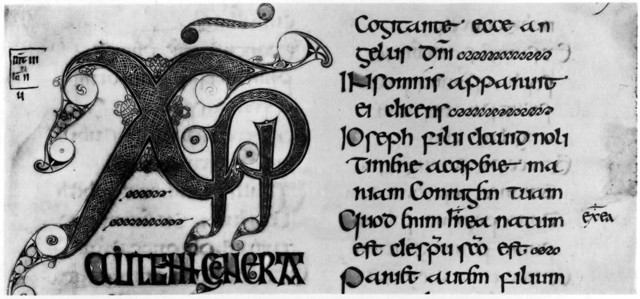 XPI
AUTEM GENERAT
Cogitante ecce an
gelus dn̄i
INsomnis apparuit
ei dicens
IOseph filii dauid noli
timere accipere ma
riam Coniugem tuam
Quod enim in ea natum
est de sp̄u sc̄o est
Pariet autem filium